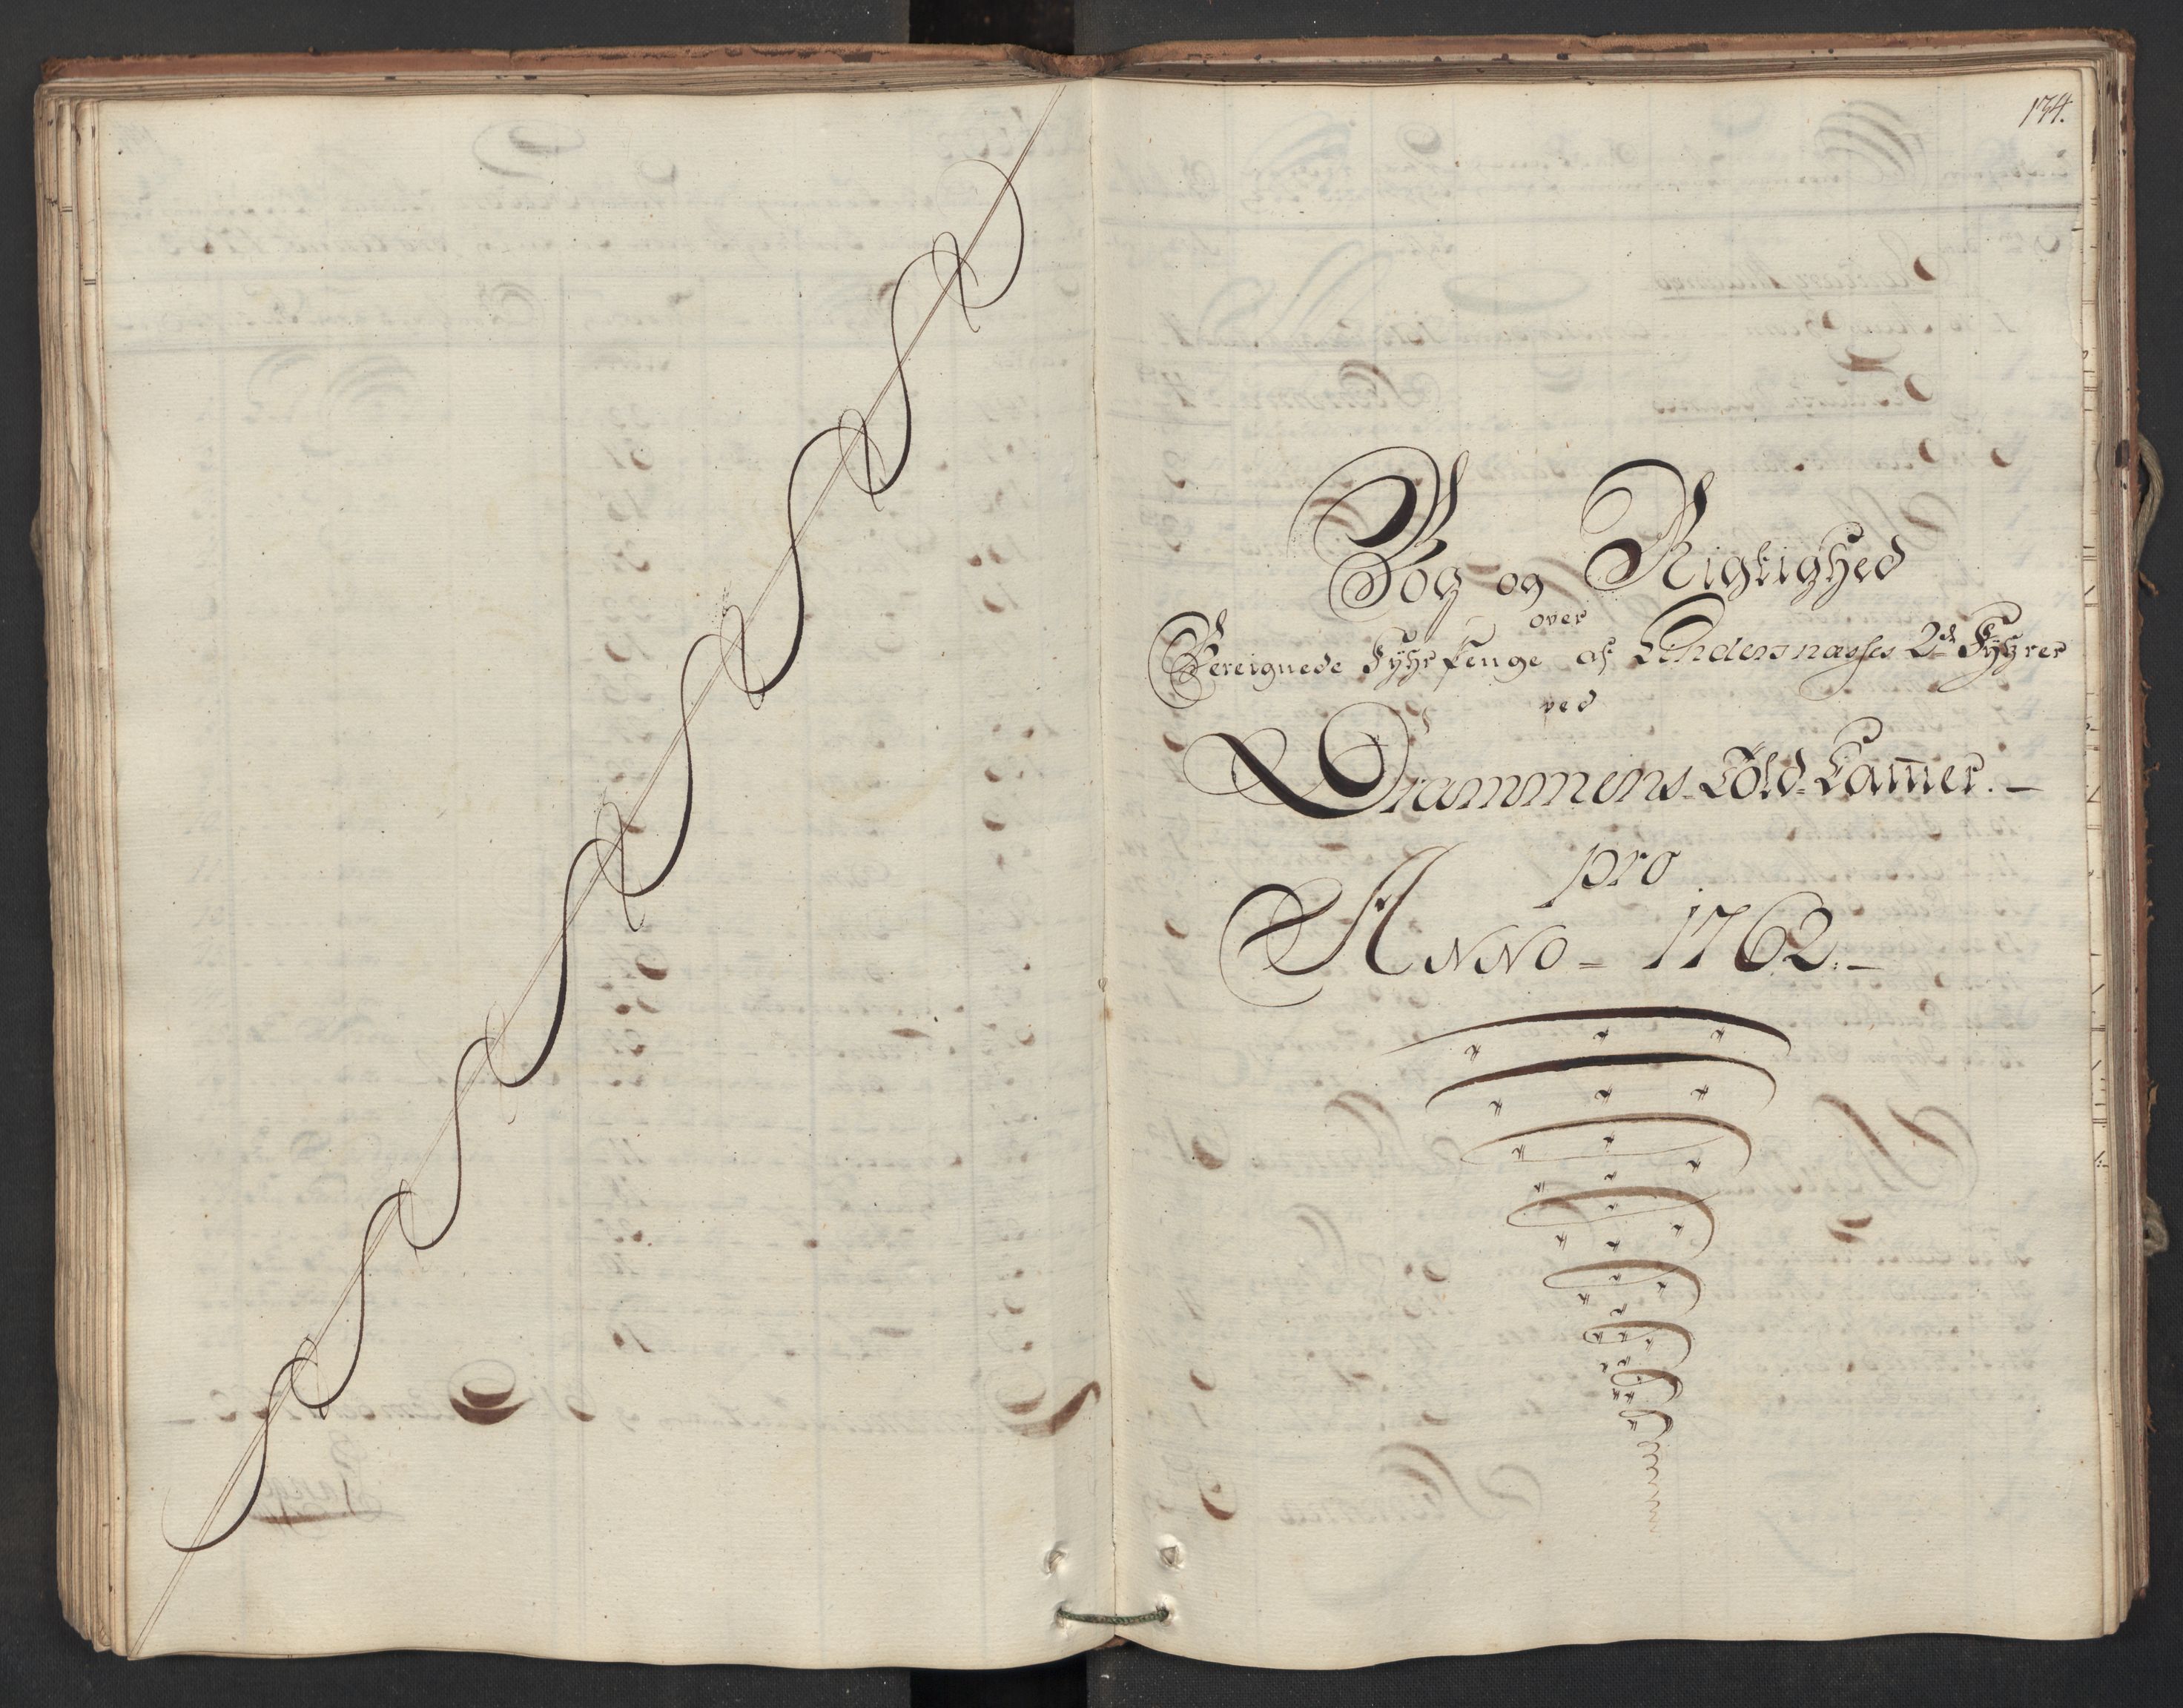 174.
Bog og Rigtighed
over
Bereignede Fyhr Penge af Lindersnæsses 2de Fyhrer
ved
Drammens Told-Camer.-
pro
ANNO - 1762.-